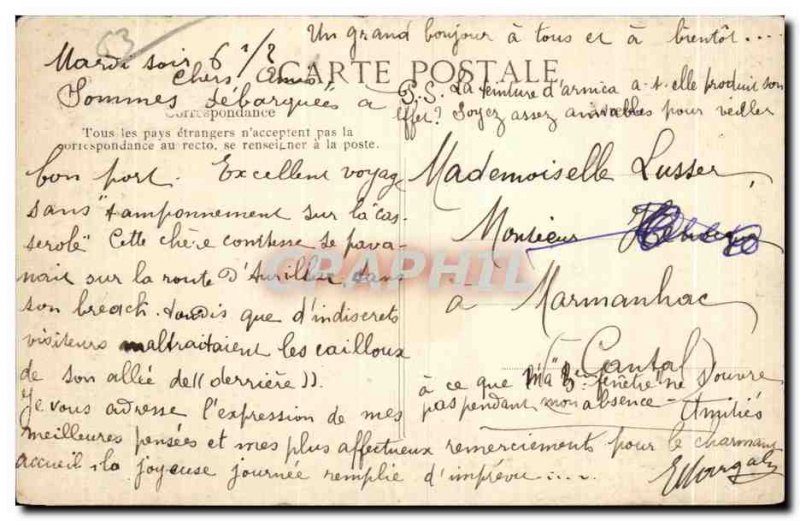 63
Un grand bonjour à tous et à bientôt...
Mardi soir 6h 1/2
Chers Amis
CARTE POSTALE
Sommes débarquées à
P.S. La teinture d'arnica a-t-elle produit son
effet? Soyez assez aimables pour veiller
Correspondance
Tous les pays étrangers n'acceptent pas la
correspondance au recto, se renseigner à la poste.
bon port. Excellent voyage
sans "tamponnement sur la cas-
serole" Cette chère comtesse se pava-
nait sur la route d'Aurillac dans
son breach. tandis que d'indiscrets
visiteurs maltraitaient les cailloux
de son allée de ((derrière)).
Je vous adresse l'expression de mes
meilleures pensées et mes plus affectueux remerciements pour le charmant
accueil la joyeuse journée remplie d'imprévu....
Mademoiselle Lusser,
Monsieur
à Marmanhac
(Cantal)
à ce que "ma 3e fenêtre" ne s'ouvre
pas pendant mon absence - Amitiés
CRAPHIL